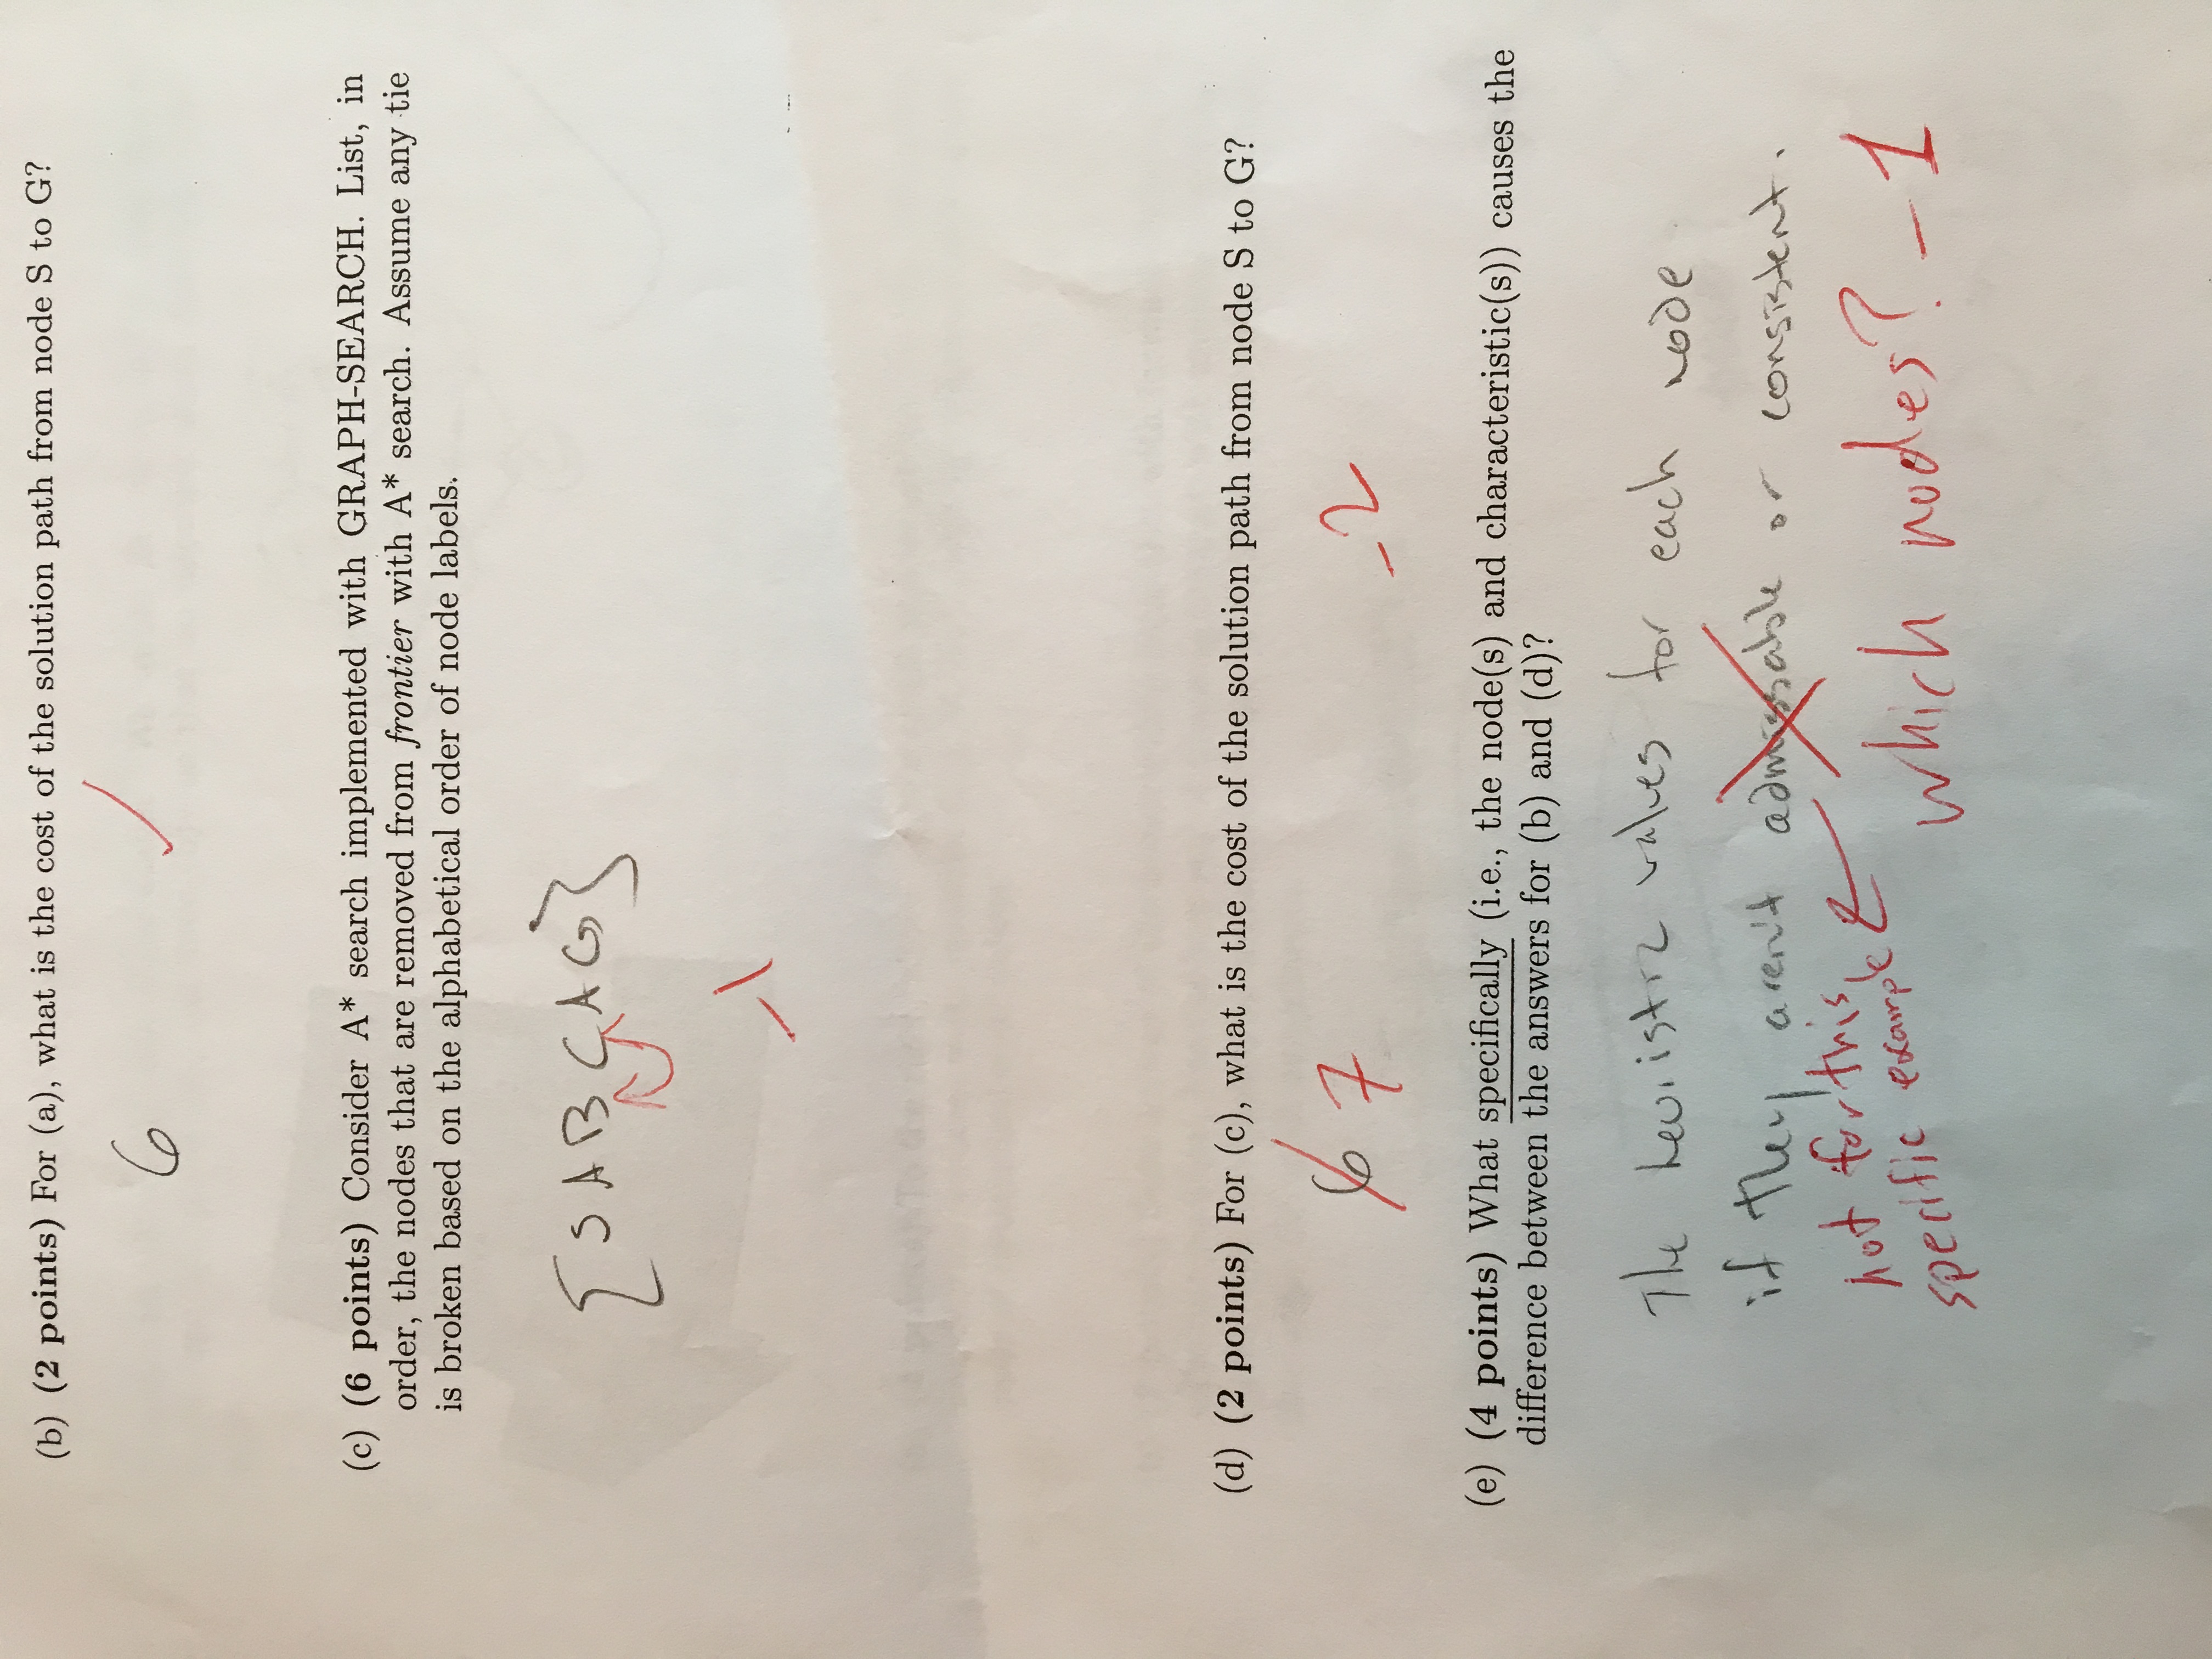 (b) (2 points) For (a), what is the cost of the solution path from node S to G?
6
(c) (6 points) Consider A* search implemented with GRAPH-SEARCH. List, in
order, the nodes that are removed from frontier with A* search. Assume any tie
is broken based on the alphabetical order of node labels.
{SABCAG}
-1
(d) (2 points) For (c), what is the cost of the solution path from node S to G?
6 7 -2
(e) (4 points) What specifically (i.e., the node(s) and characteristic(s)) causes the
difference between the answers for (b) and (d)?
The heuristic values for each node
if they aren't admissable or consistent.
not for this
specific example
which nodes? -1